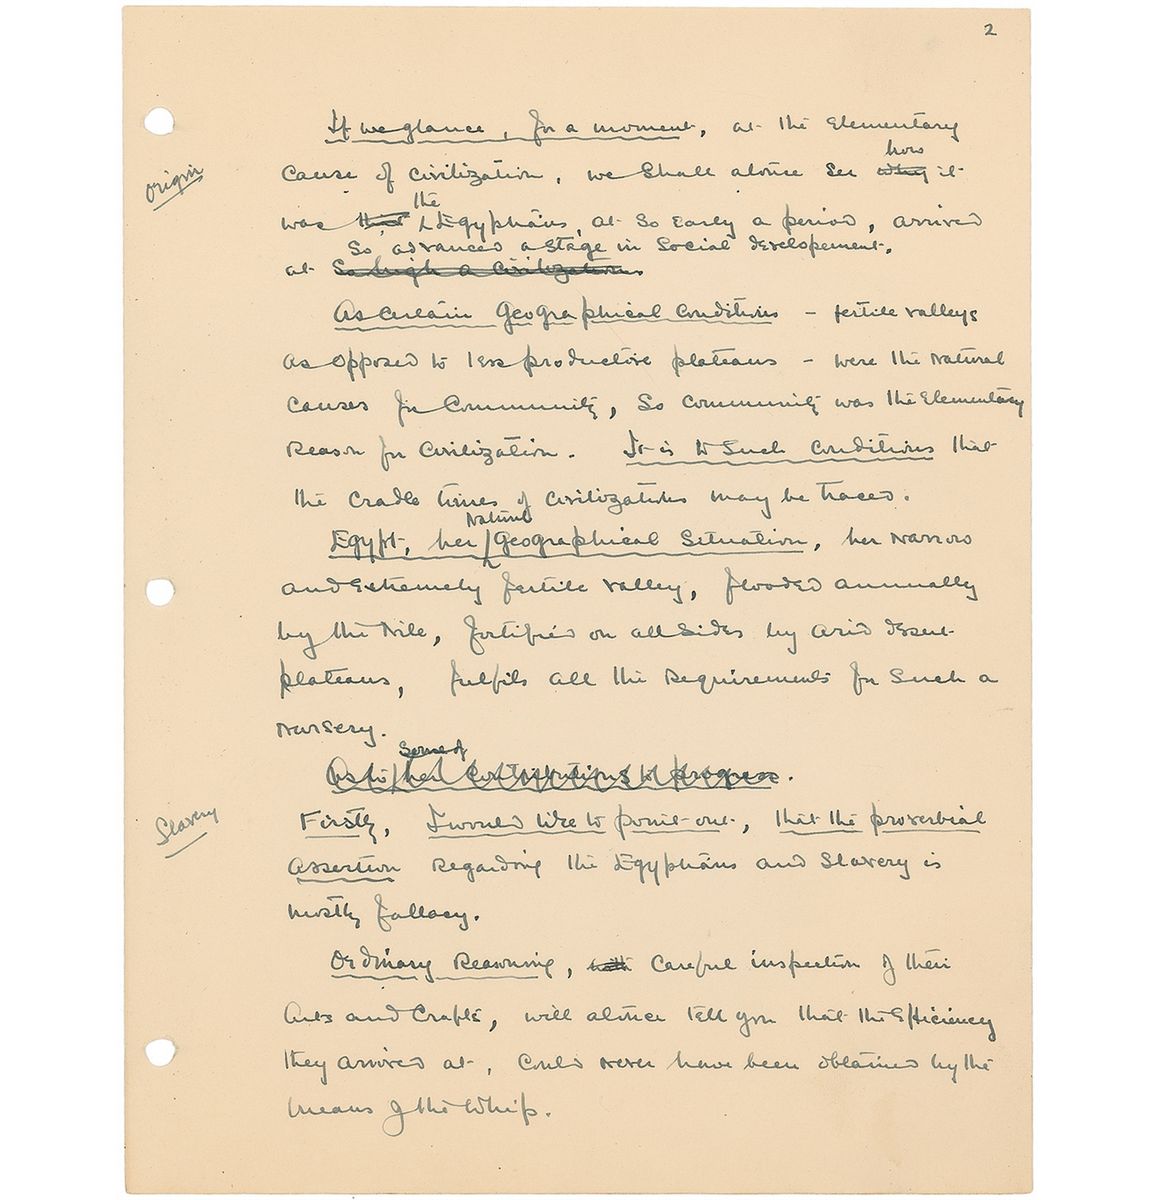 2
If we glance, for a moment, at the Elementary
how
origin
cause of civilization, we shall atonce see why it
the
was that Egyptians, at so early a period, arrived
so advanced a stage in social developement.
at so high a civilization
As certain geographical conditions - fertile valleys
as opposed to less productive plateaus - were the natural
causes for community, so community was the Elementary
Reason for civilization. It is to such conditions that
the cradle times of civilizations may be traced.
natural
Egypt, her geographical situation, her narrow
and extremely fertile valley, flooded annually
by the Nile, fortified on all sides by arid desert
plateaus, fulfils all the requirements for such a
nursery.
some of
As to her contributions to progress.
Slavery
Firstly, I would like to point-out, that the proverbial
assertion regarding the Egyptians and Slavery is
mostly fallacy.
Ordinary Reasoning, with careful inspection of their
Arts and Crafts, will atonce tell you that the Efficiency
they arrived at, could never have been obtained by the
means of the Whip.